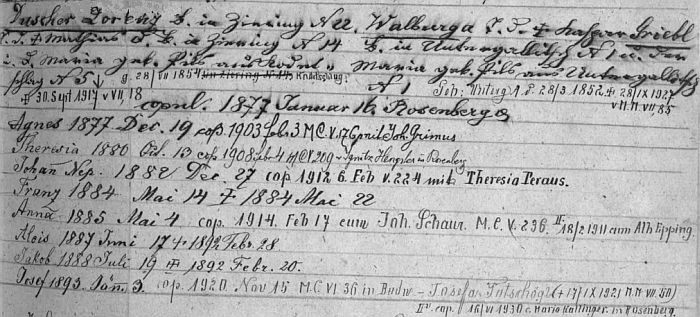 Tuscher Lorenz B. in Zinning N 22. Walburga T. d. ‡ Kaspar Griebl
S. d. ‡ Mathias T. B. in Zinning N 14 B. in Untergallitsch N 1 u. der
u. d. Maria geb. Pils aus Kodet Maria geb. Pils aus Untergallitsch
schlag N 5, g. 28/VII 1854 in Zinning N 14 N 1 Geb: Unterg. 1. P. 28/3 1852 ‡ 28/IX 1927
‡ 30. Sept. 1917 v. VII, 18 v. M.M. VII, 85
copul. 1877 Januar 16. Rosenberg
Agnes 1877 Dec. 19 cop. 1903 Feb. 3 M.C.V. 176 mit Joh. Grimus
Theresia 1880 Oct. 13 cop. 1908 Feb. 4 M.C.V. 209 Ignatz Hengler in Rosenberg
Johan Nep. 1882 Dec. 27 cop 1912 6. Feb V. 224 mit Theresia Peraus.
Franz 1884 Mai 14 ‡ 1884 Mai 22
Anna 1885 Mai 4 cop. 1914. Feb 17 cum Joh. Schaur. M.C.V. 236. 18/2 1911 cum Alb. Epping.
Alois 1887 Juni 17 + 1892 Febr. 28
Jakob 1888 Juli 19 ‡ 1892 Febr. 20.
Josef 1893. Jän. 3. cop. 1920. Nov 15 M.C. VI 36 in Budw - Josefa Tutschögl (+ 17/IX 1921 M.M. VII. 50)
II. cop. 16/VI 1930 c. Maria Kattinger. in Rosenberg.